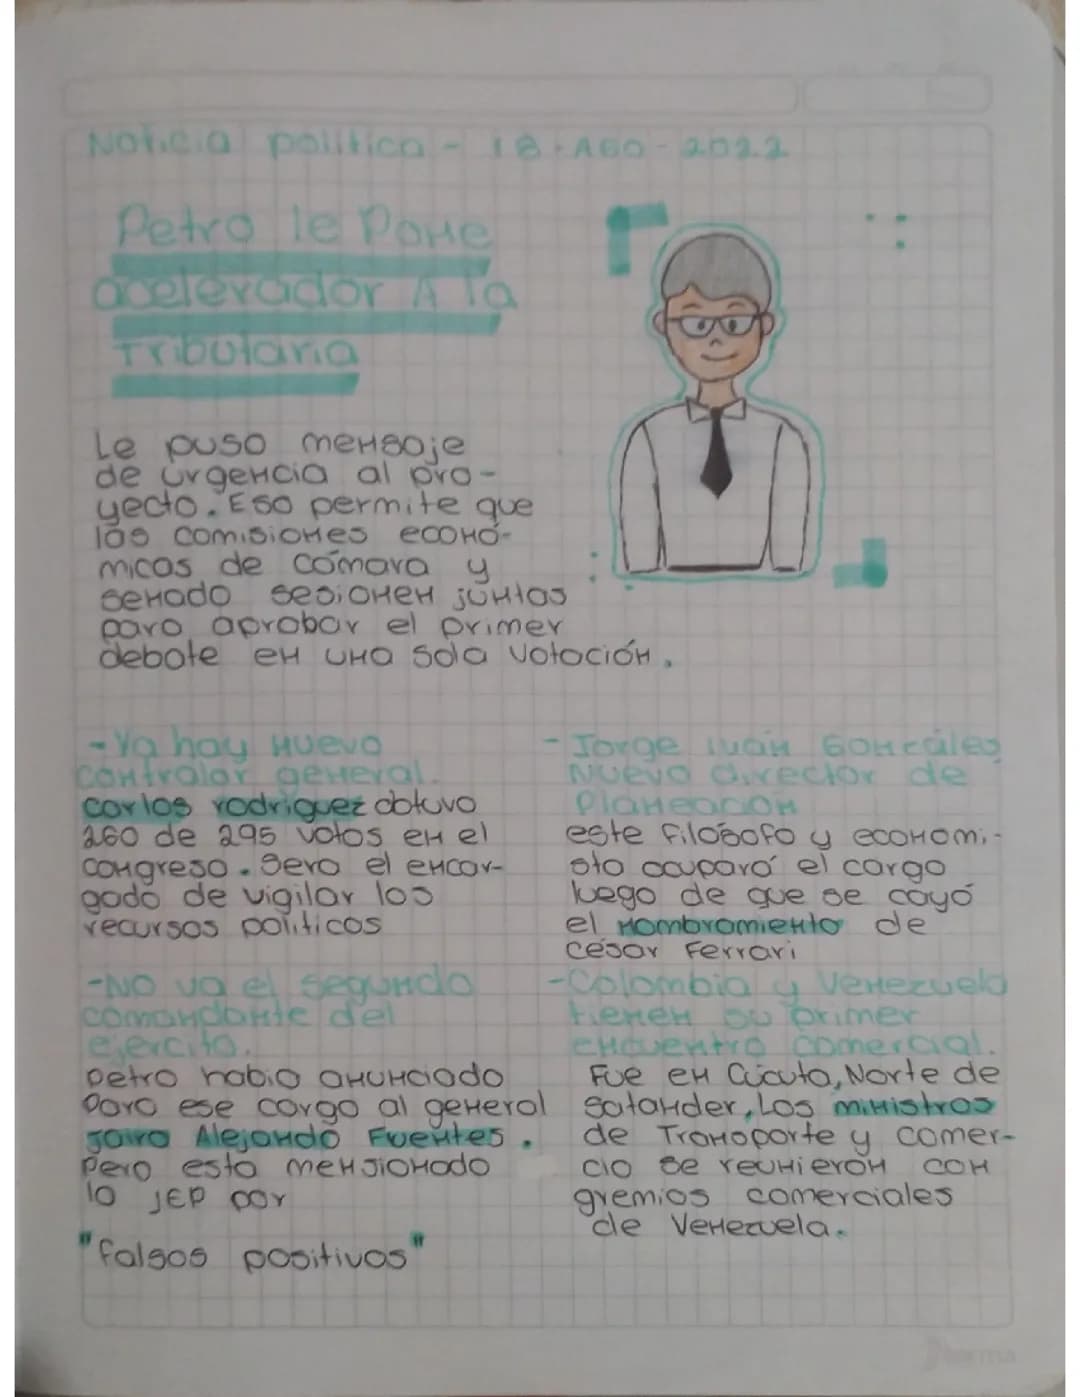 Noticia política - 18-AGO-2022
Petro le Pone
acelerador A la
Tributaria
Le puso mensaje
de urgencia al pro-
yecto. Eso permite que
las comisiones econó-
micas de cámara y
senado sesionen juntas
para aprobar el primer
debate en una sola votación.
-Ya hay nuevo
contralor general.
carlos rodriguez obtuvo
260 de 295 votos en el
congreso. Sera el encar-
gado de vigilar los
recursos políticos
-No va el segundo
comandante del
ejercito.
petro habia anunciado
para ese cargo al general
jairo Alejando Fuentes.
Pero esta mensionado
la JEP por
"falsos positivos"
- Jorge iván Gonzáles
Nuevo director de
Planeación
este filósofo y economi-
sta ocupará el cargo
luego de que se cayó
el nombramiento de
César Ferrari
-Colombia y Venezuela
tienen su primer
encuentro comercial.
Fue en Cúcuta, Norte de
Satander, Los ministros
de Transporte y comer-
cio se reunierón con
gremios comerciales
de Venezuela.
norma